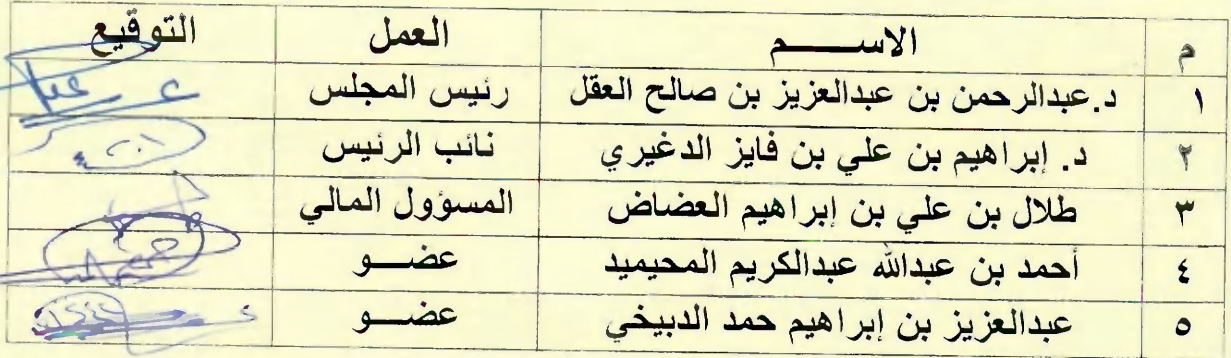 م الاســـــم العمل التوقيع
١ د.عبدالرحمن بن عبدالعزيز بن صالح العقل رئيس المجلس
٢ د. إبراهيم بن علي بن فايز الدغيري نائب الرئيس
٣ طلال بن علي بن إبراهيم العضاض المسؤول المالي
٤ أحمد بن عبدالله عبدالكريم المحيميد عضـــو
٥ عبدالعزيز بن إبراهيم حمد الدبيخي عضـــو